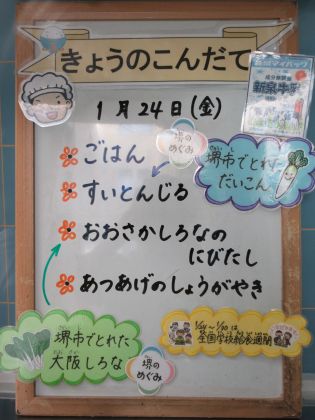 きょうのこんだて
1月24日(金)
ごはん
すいとんじる
おおさかしろなの
にびたし
あつあげのしょうがやき
堺のめぐみ
堺市でとれた
だいこん
堺市でとれた
大阪しろな
堺のめぐみ
1/24~1/30は
全国学校給食週間